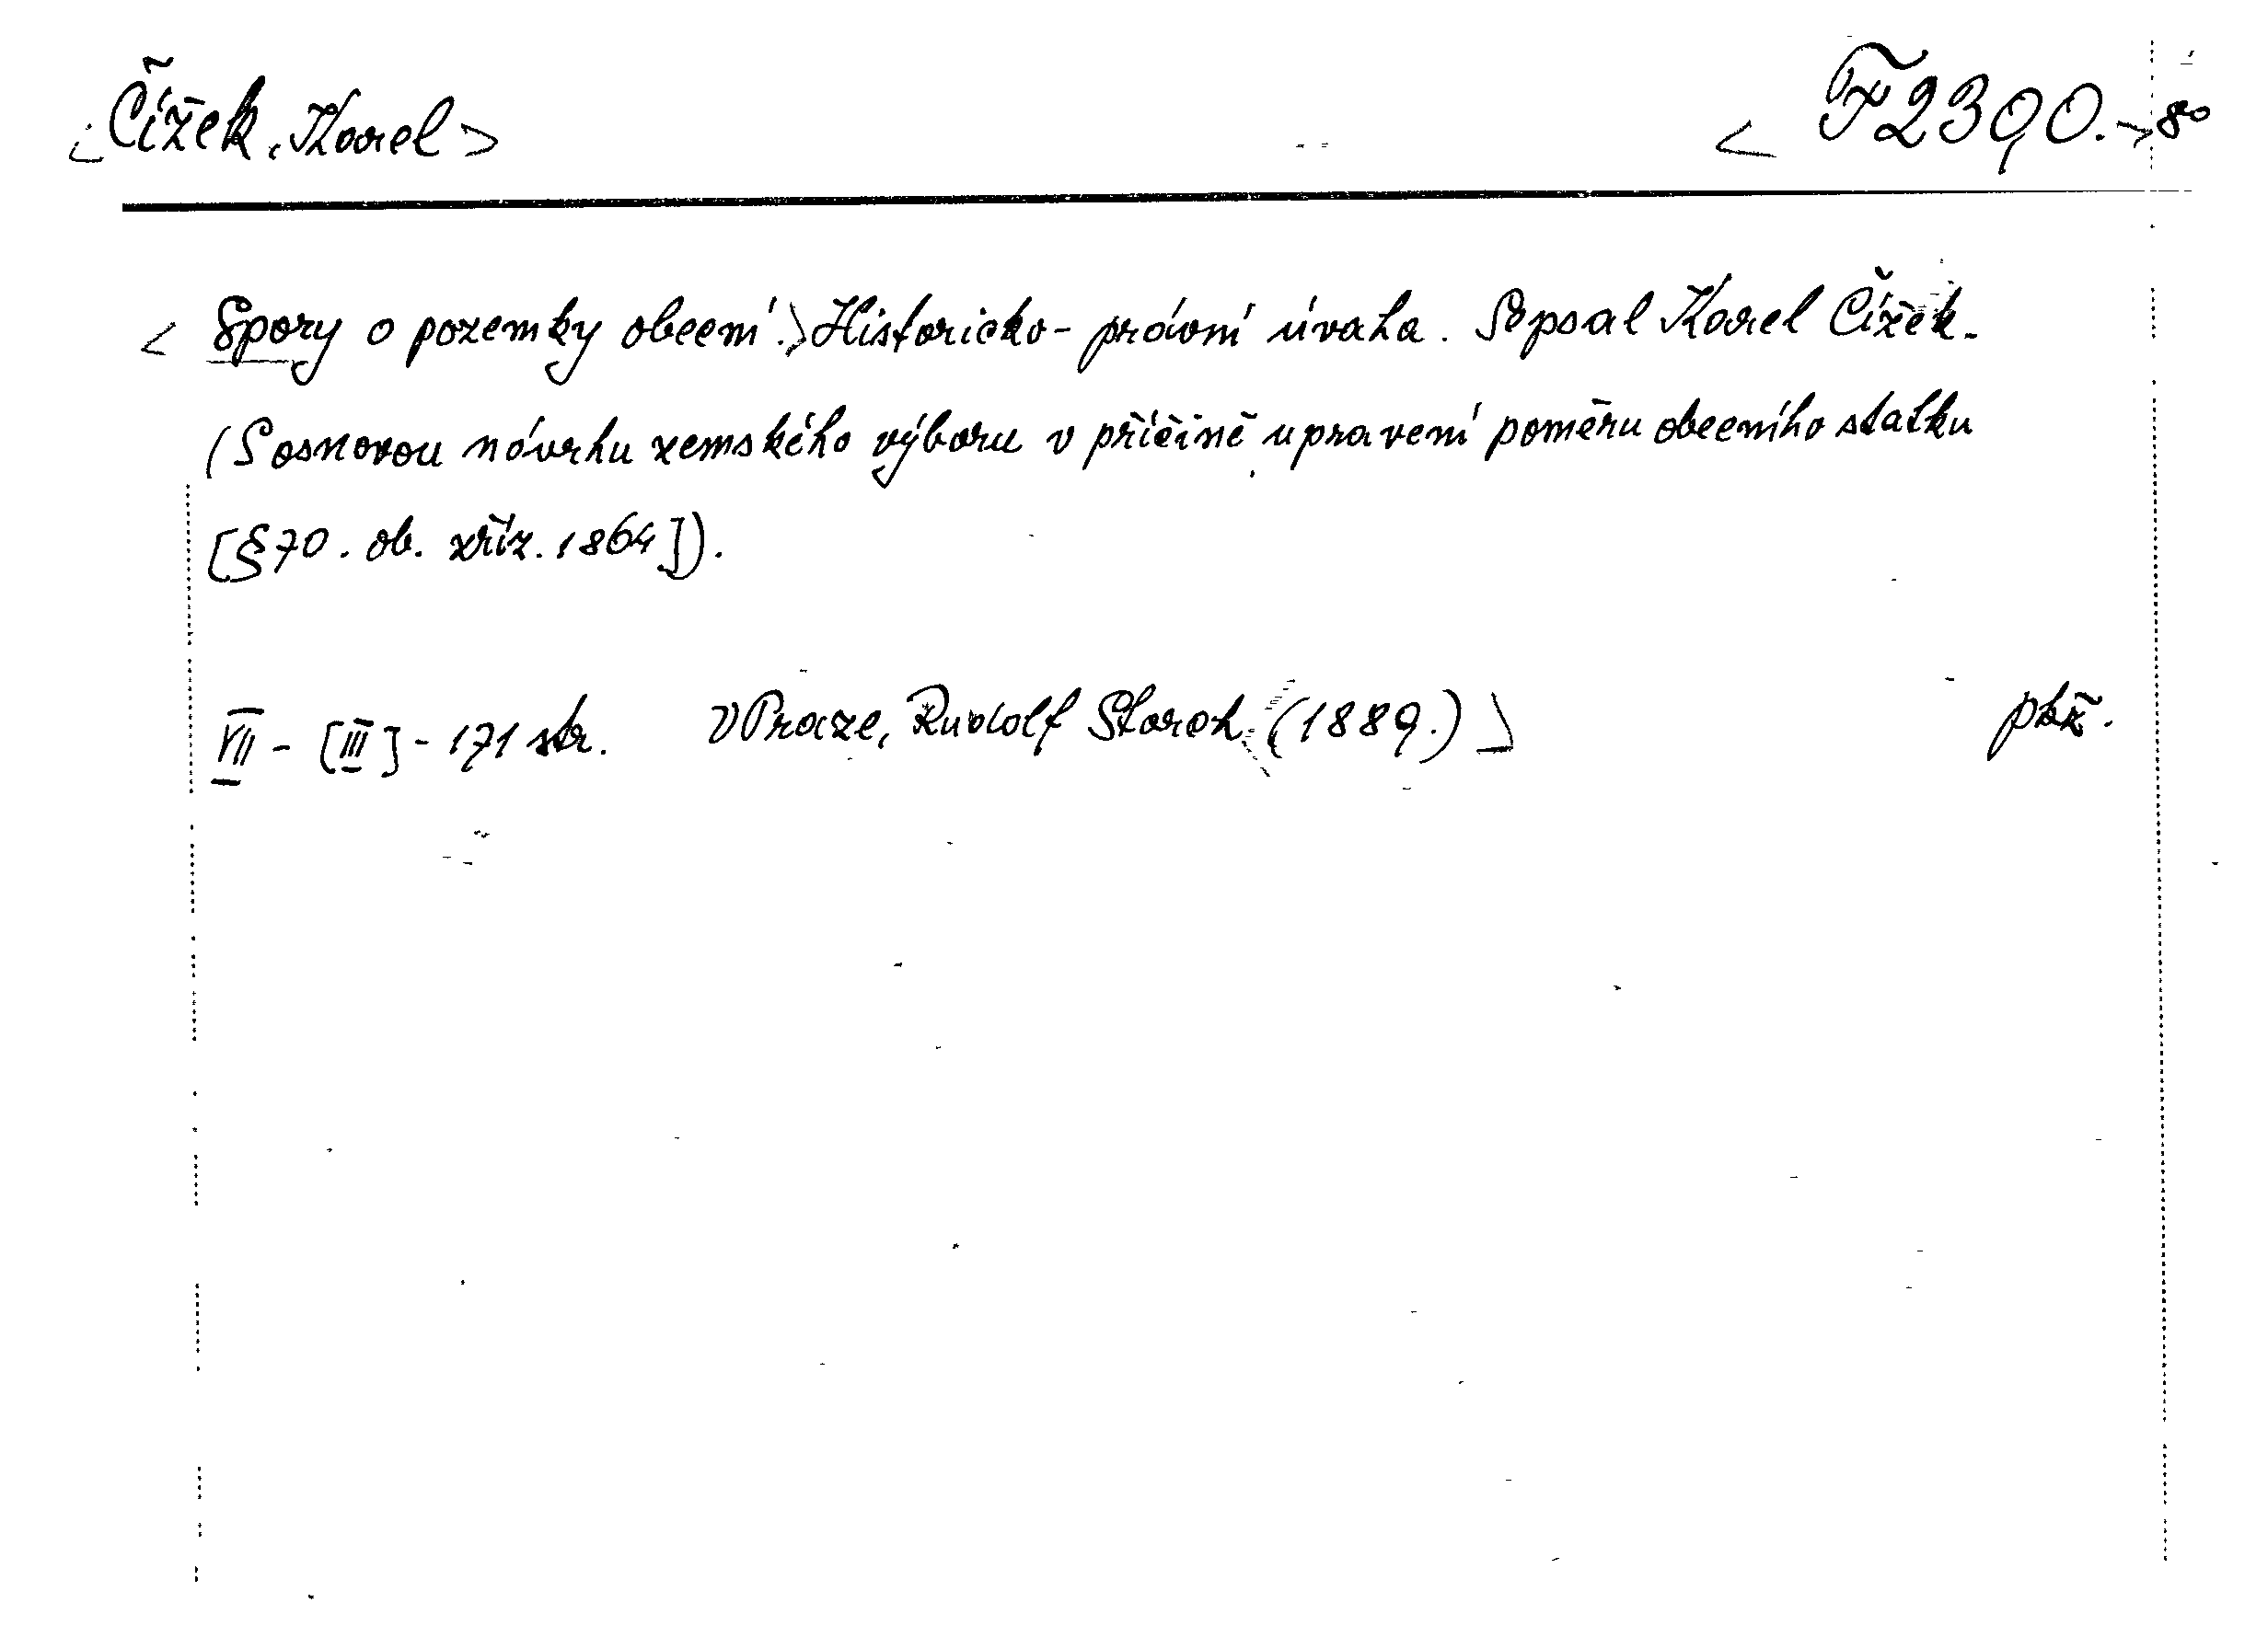 <Čížek, Karel> <F 2390.-> 8°
<Spory o pozemky obecní.> Historicko-právní úvaha. Sepsal Karel Čížek.
(S osnovou návrhu zemského výboru v příčině upravení poměru obecního statku
[§ 70. ob. zříz. 1864]).
VII - [III] - 171 str. V Praze, Rudolf Storch (1889.)>